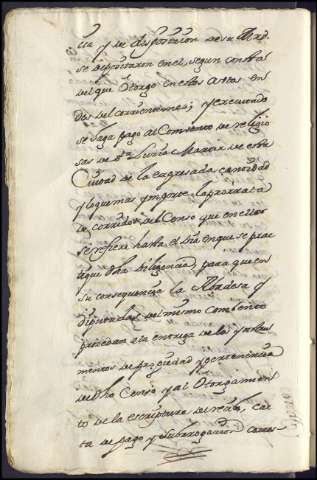 su disposicion de su
se depositaron en el, segun consta
del que otorgo en estos Autos en
dos del corriente mes; y execuando
se haga pago al Convento de religio
sas de Sta. Lucia Martir de esta
Ciudad de la expresada cantidad
y lo que mas importe la prorrata
de corridos del Censo que en ellos
se refiere hasta el dia en que se prac
tique dha diligencia, para que en
su consequencia la Abadesa y
Diputadas del mismo Combento
procedan a la entrega de los
mentos de propiedad y pertenencia
de dho Censo y al Otorgamien
to de la escriptura de car
ta de pago y subrogacion